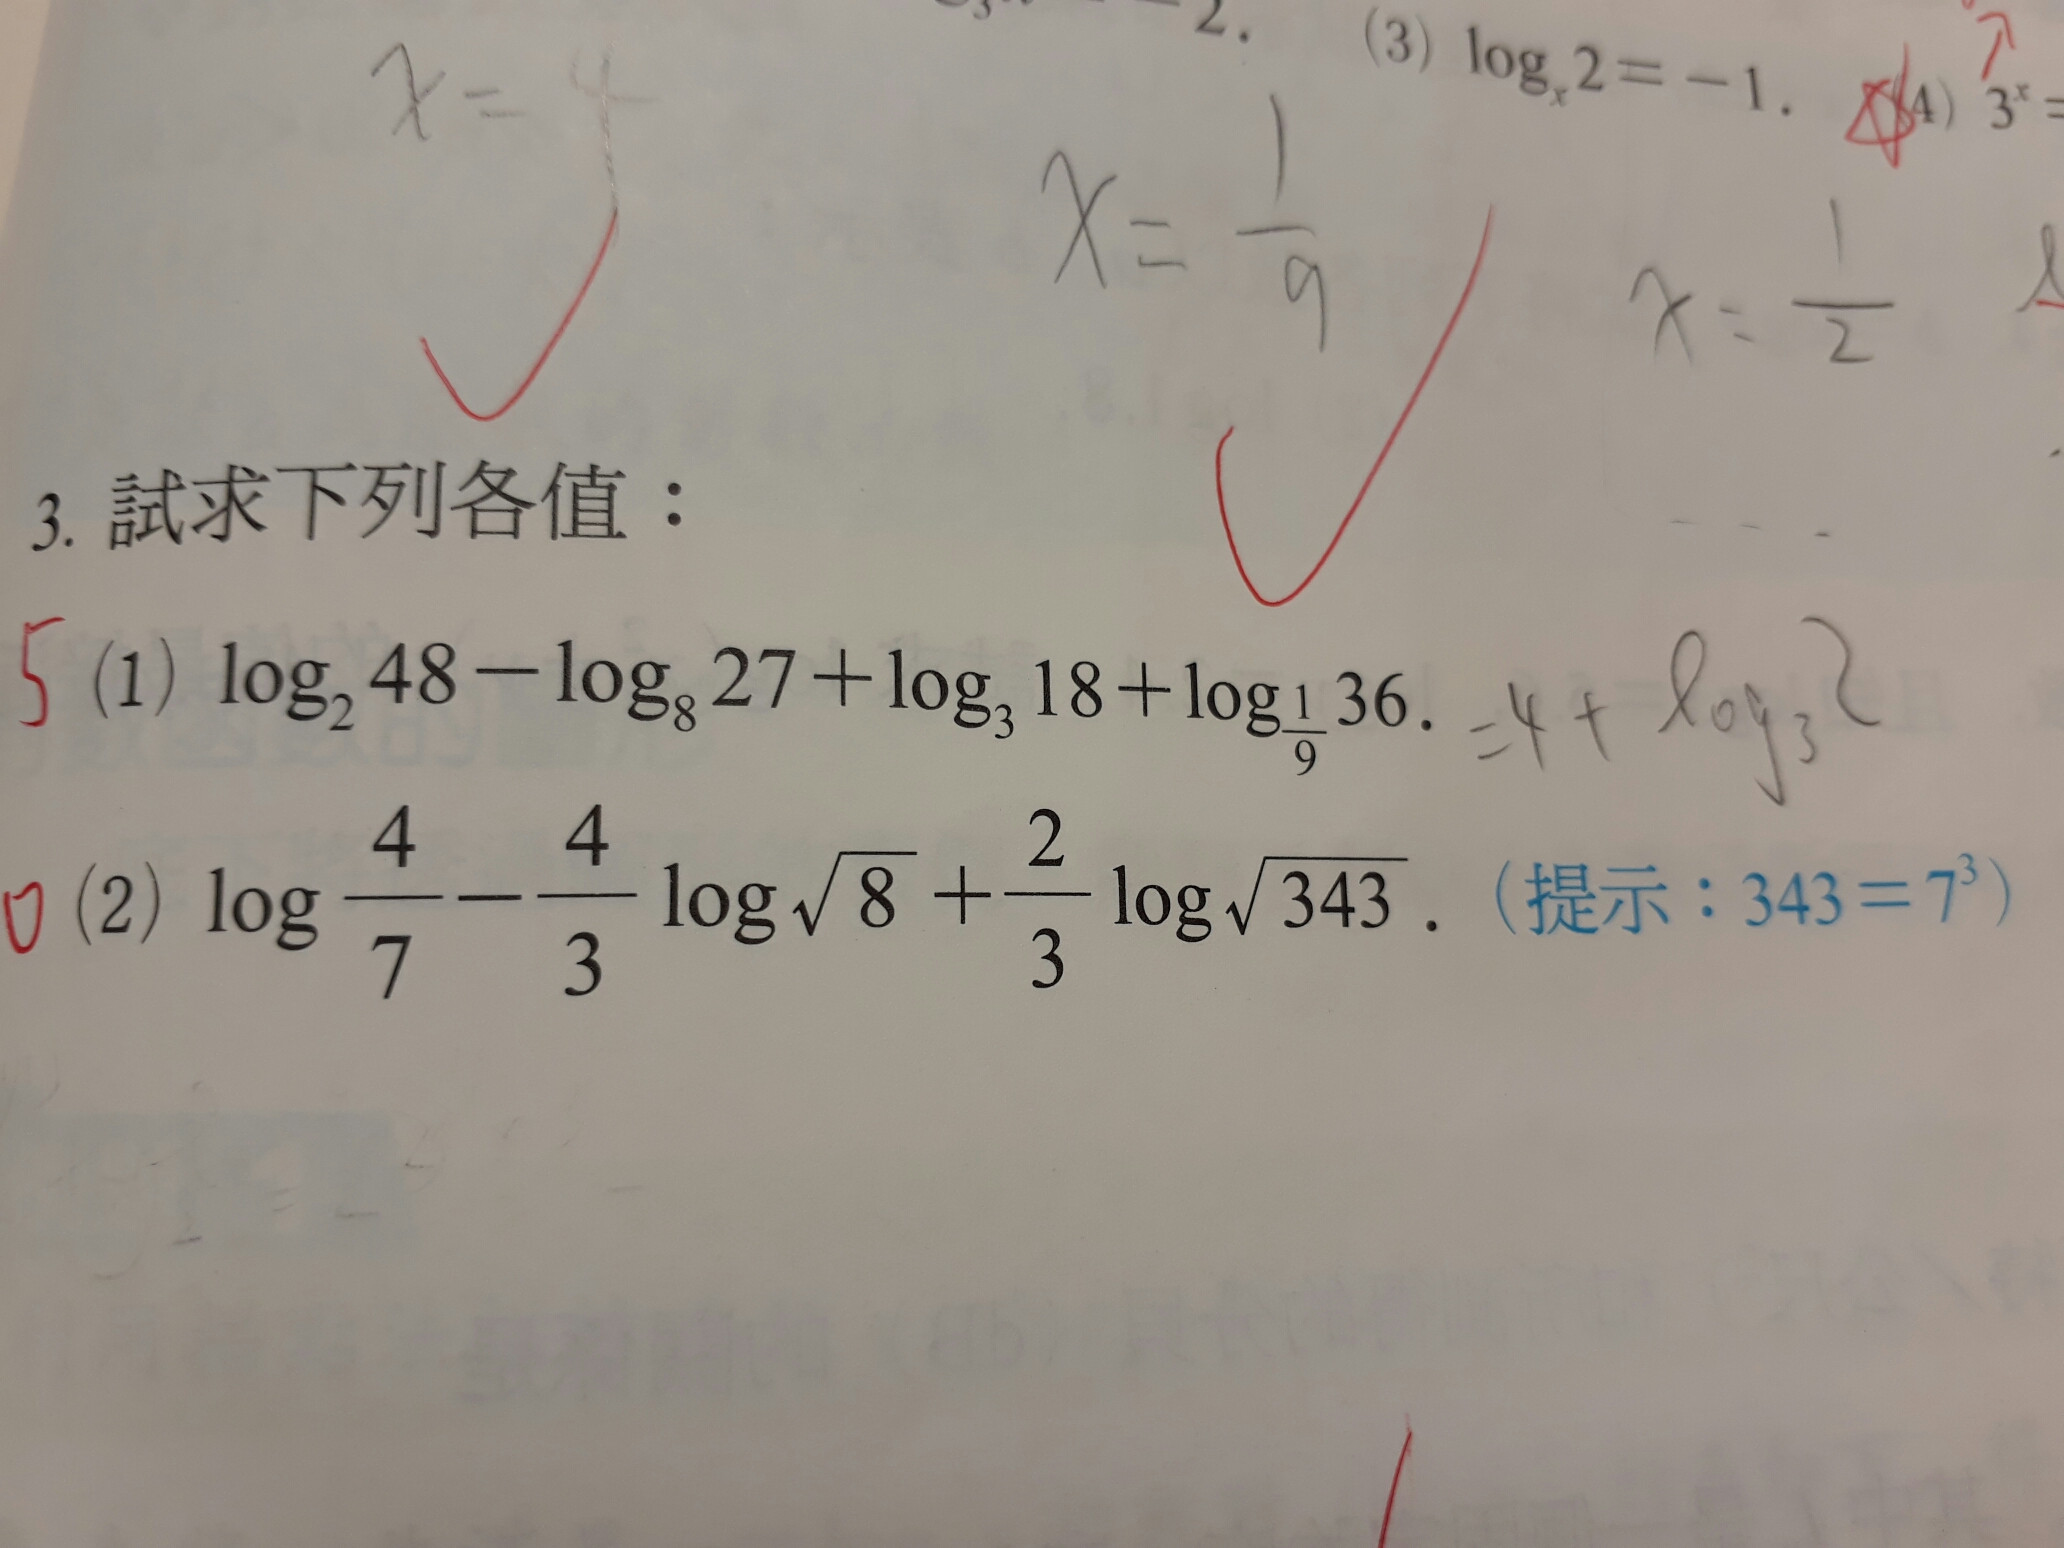 2. (3) log_x 2 = -1. (4) 3^x =
x = 4
x = 1/9
x = 1/2
3. 試求下列各值：
5 (1) log_2 48 - log_8 27 + log_3 18 + log_{1/9} 36. = 4 + log_3 2
0 (2) log 4/7 - 4/3 log √8 + 2/3 log √343. (提示：343 = 7^3)